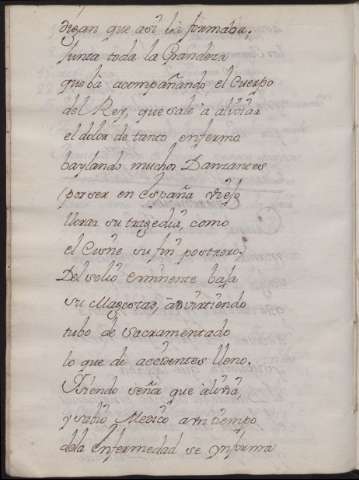 digan que asi la formaba.
Junta toda la Grandeza
que bà acompañando el Cuerpo
del Rey, que sale à alibiar
el dolor de tanto enfermo
baylando muchos Danzantes
(por ser en España viejo
llorar su tragedia, como
el Cisne su fin postrero.
Del solio eminente baja
su Magestad, advirtiendo
tubo de Sacramentado
lo que de accidentes lleno.
Siendo señá que
y Mexico a un tiempo
de la enfermedad se ynforma